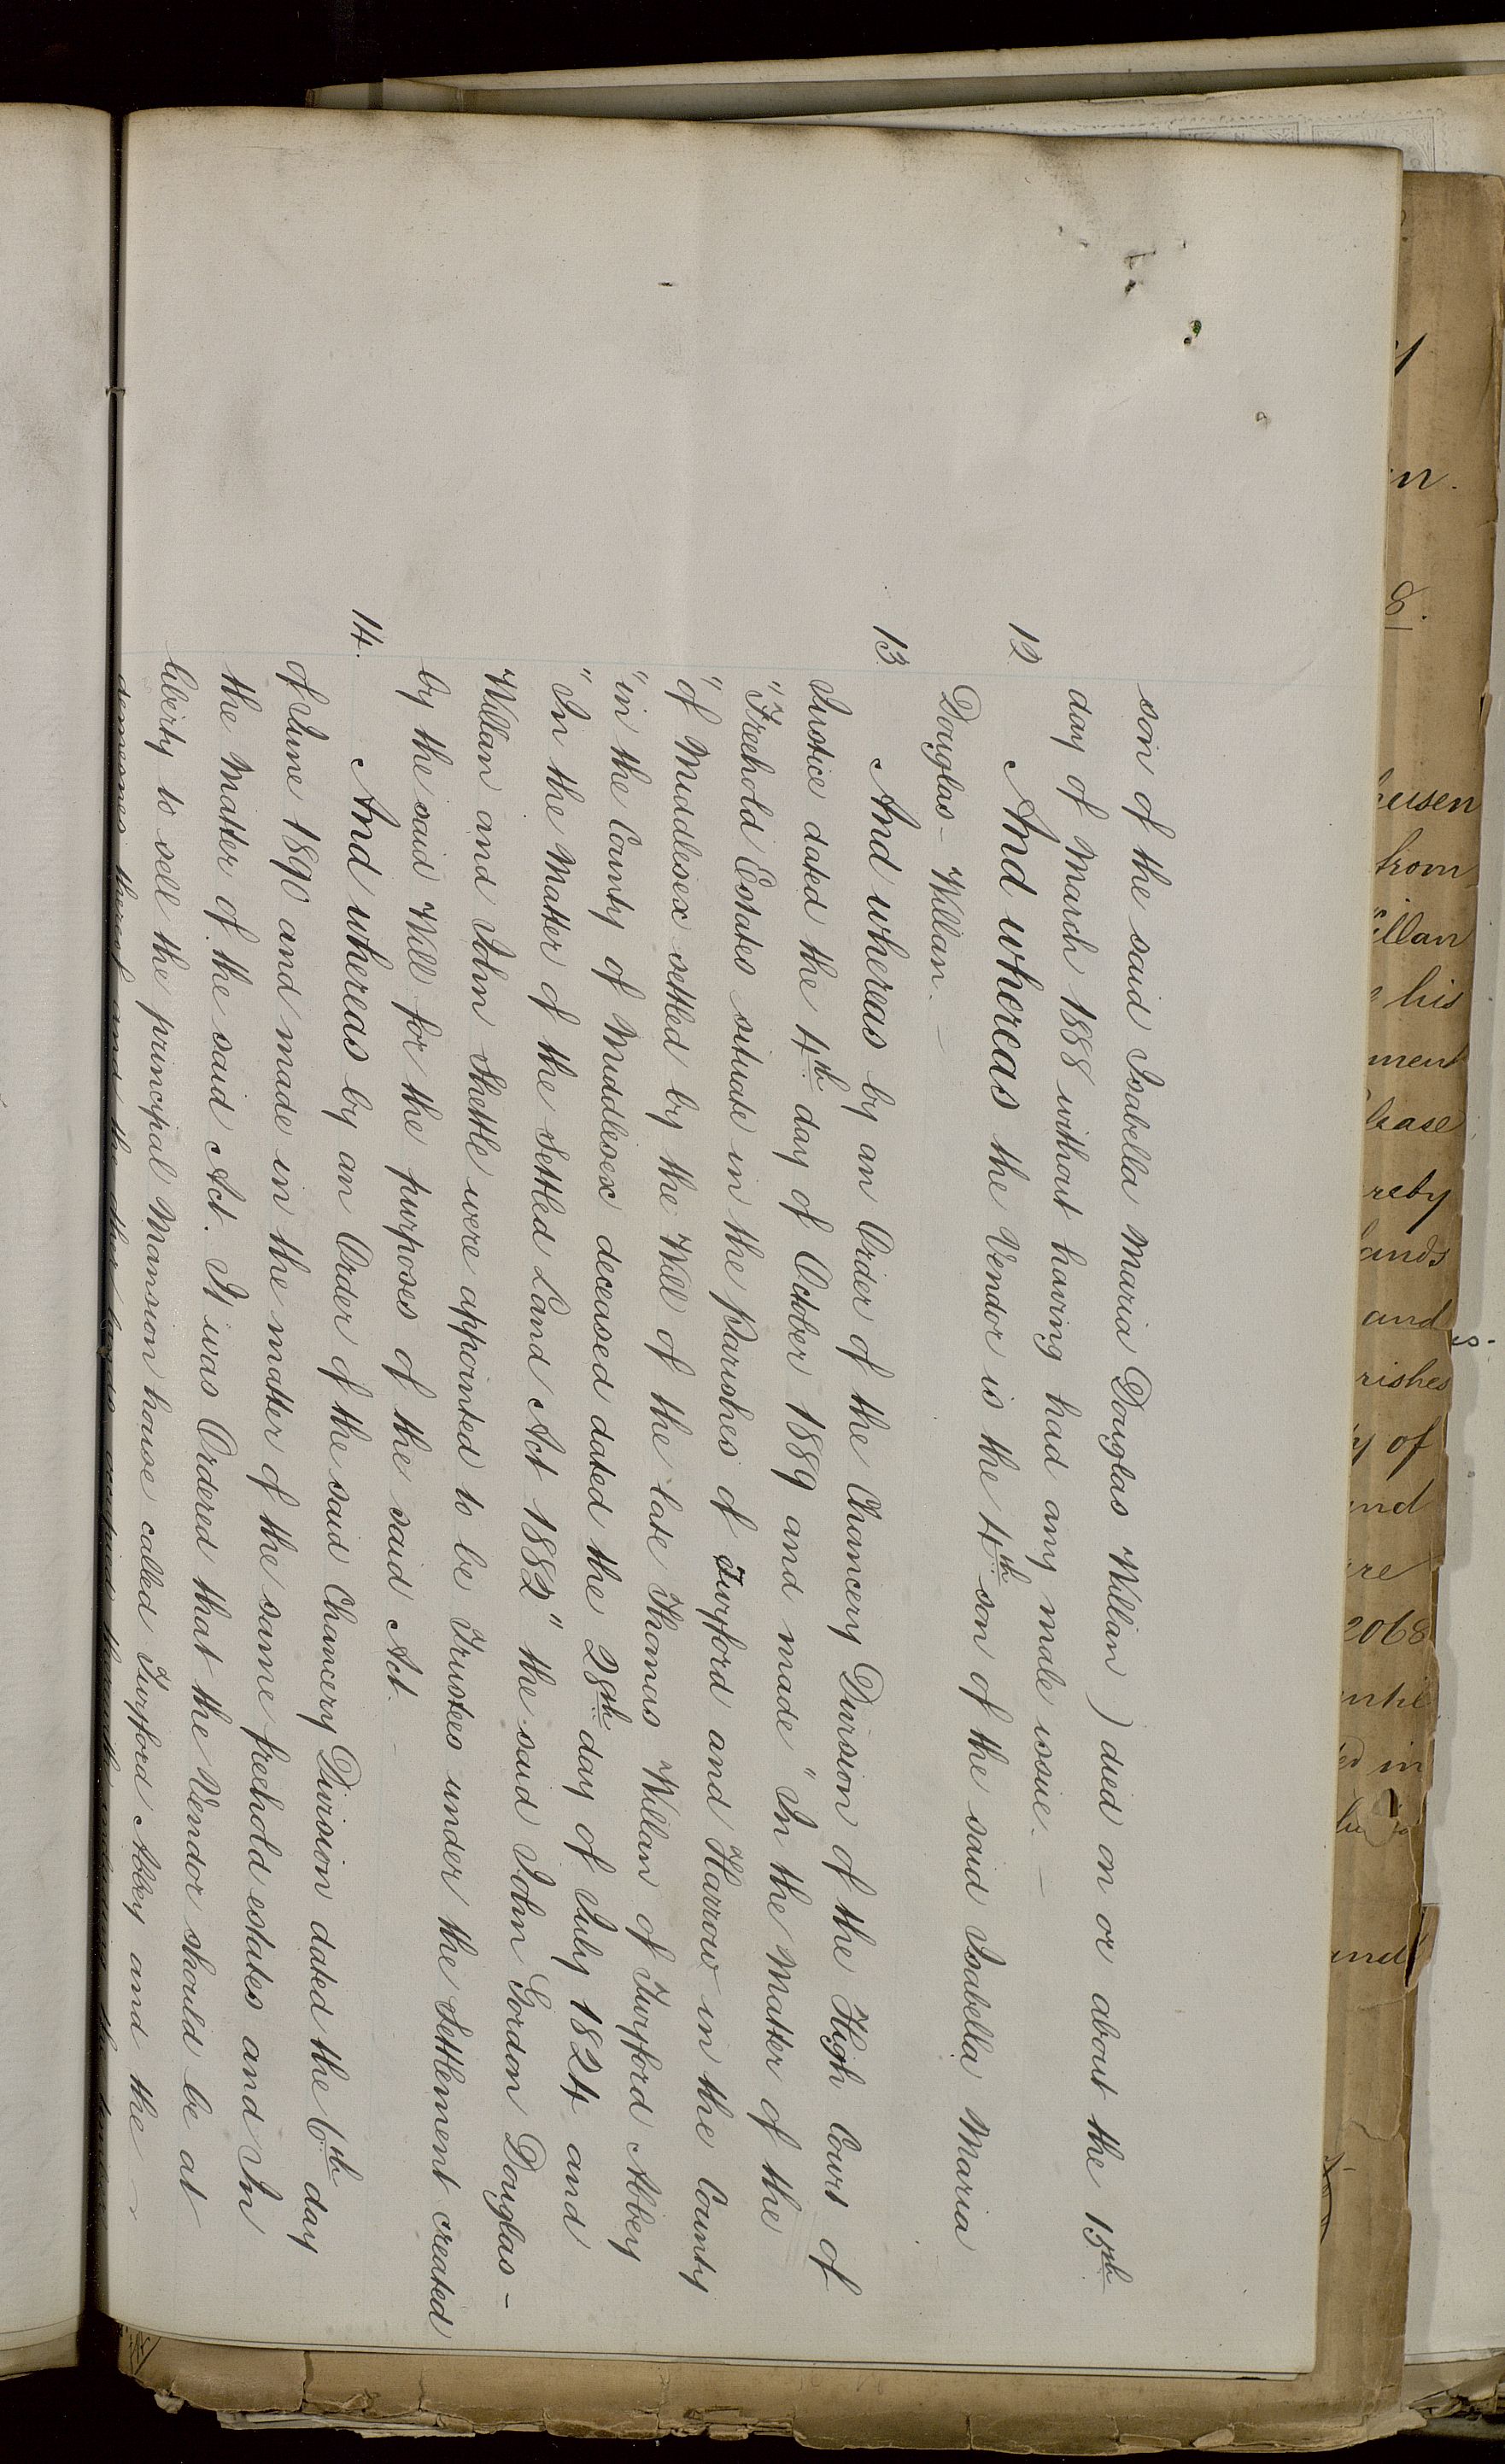 son of the said Isabella Maria Douglas Willan) died on or about the 15th
day of March 1888 without having had any male issue. —
12 And whereas the Vendor is the 4th son of the said Isabella Maria
Douglas-Willan. —
13 And whereas by an Order of the Chancery Division of the High Court of
Justice dated the 4th day of October 1889 and made "In the Matter of the
"Freehold Estates situate in the Parishes of Twyford and Harrow in the County
"of Middlesex settled by the Will of the late Thomas Willan of Twyford Abbey
"in the County of Middlesex deceased dated the 28th day of July 1824 and
"In the Matter of the Settled Land Act 1882" the said John Gordon Douglas-
Willan and John Shettle were appointed to be Trustees under the Settlement created
by the said Will for the purposes of the said Act. -
14. And whereas by an Order of the said Chancery Division dated the 6th day
of June 1890 and made in the matter of the same freehold estates and In
the Matter of the said Act. It was Ordered that the Vendor should be at
liberty to sell the principal Mansion house called Twyford Abbey and the —
demesnes thereof and the other lands occupied therewith
n.
8.
from
illan
his
ment
lease
reby
ands
and
rishes
of
and
2068
until
in
and